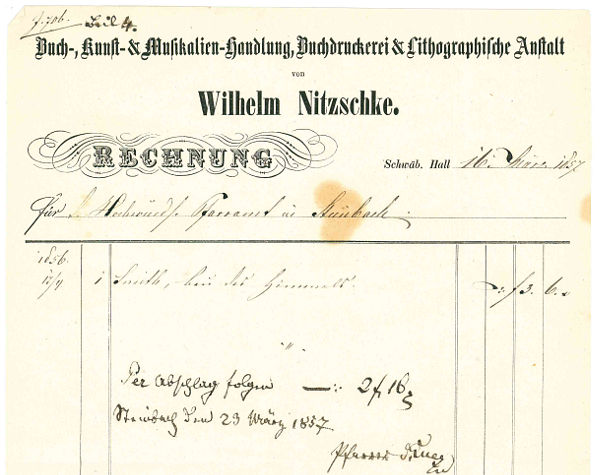 Beil 4.
Buch-, Kunst- & Musikalien-Handlung, Buchdruckerei & Lithographische Anstalt
von
Wilhelm Nitzschke.
RECHNUNG
Schwäb. Hall 16. März 1857
für Pfarramt in Steinbach.
1856.
1 Smith, des Himmels. f 3. 6.
Per Abschlag folgen —: 2f 16
Steinbach den 23 März 1857
Pfarrer